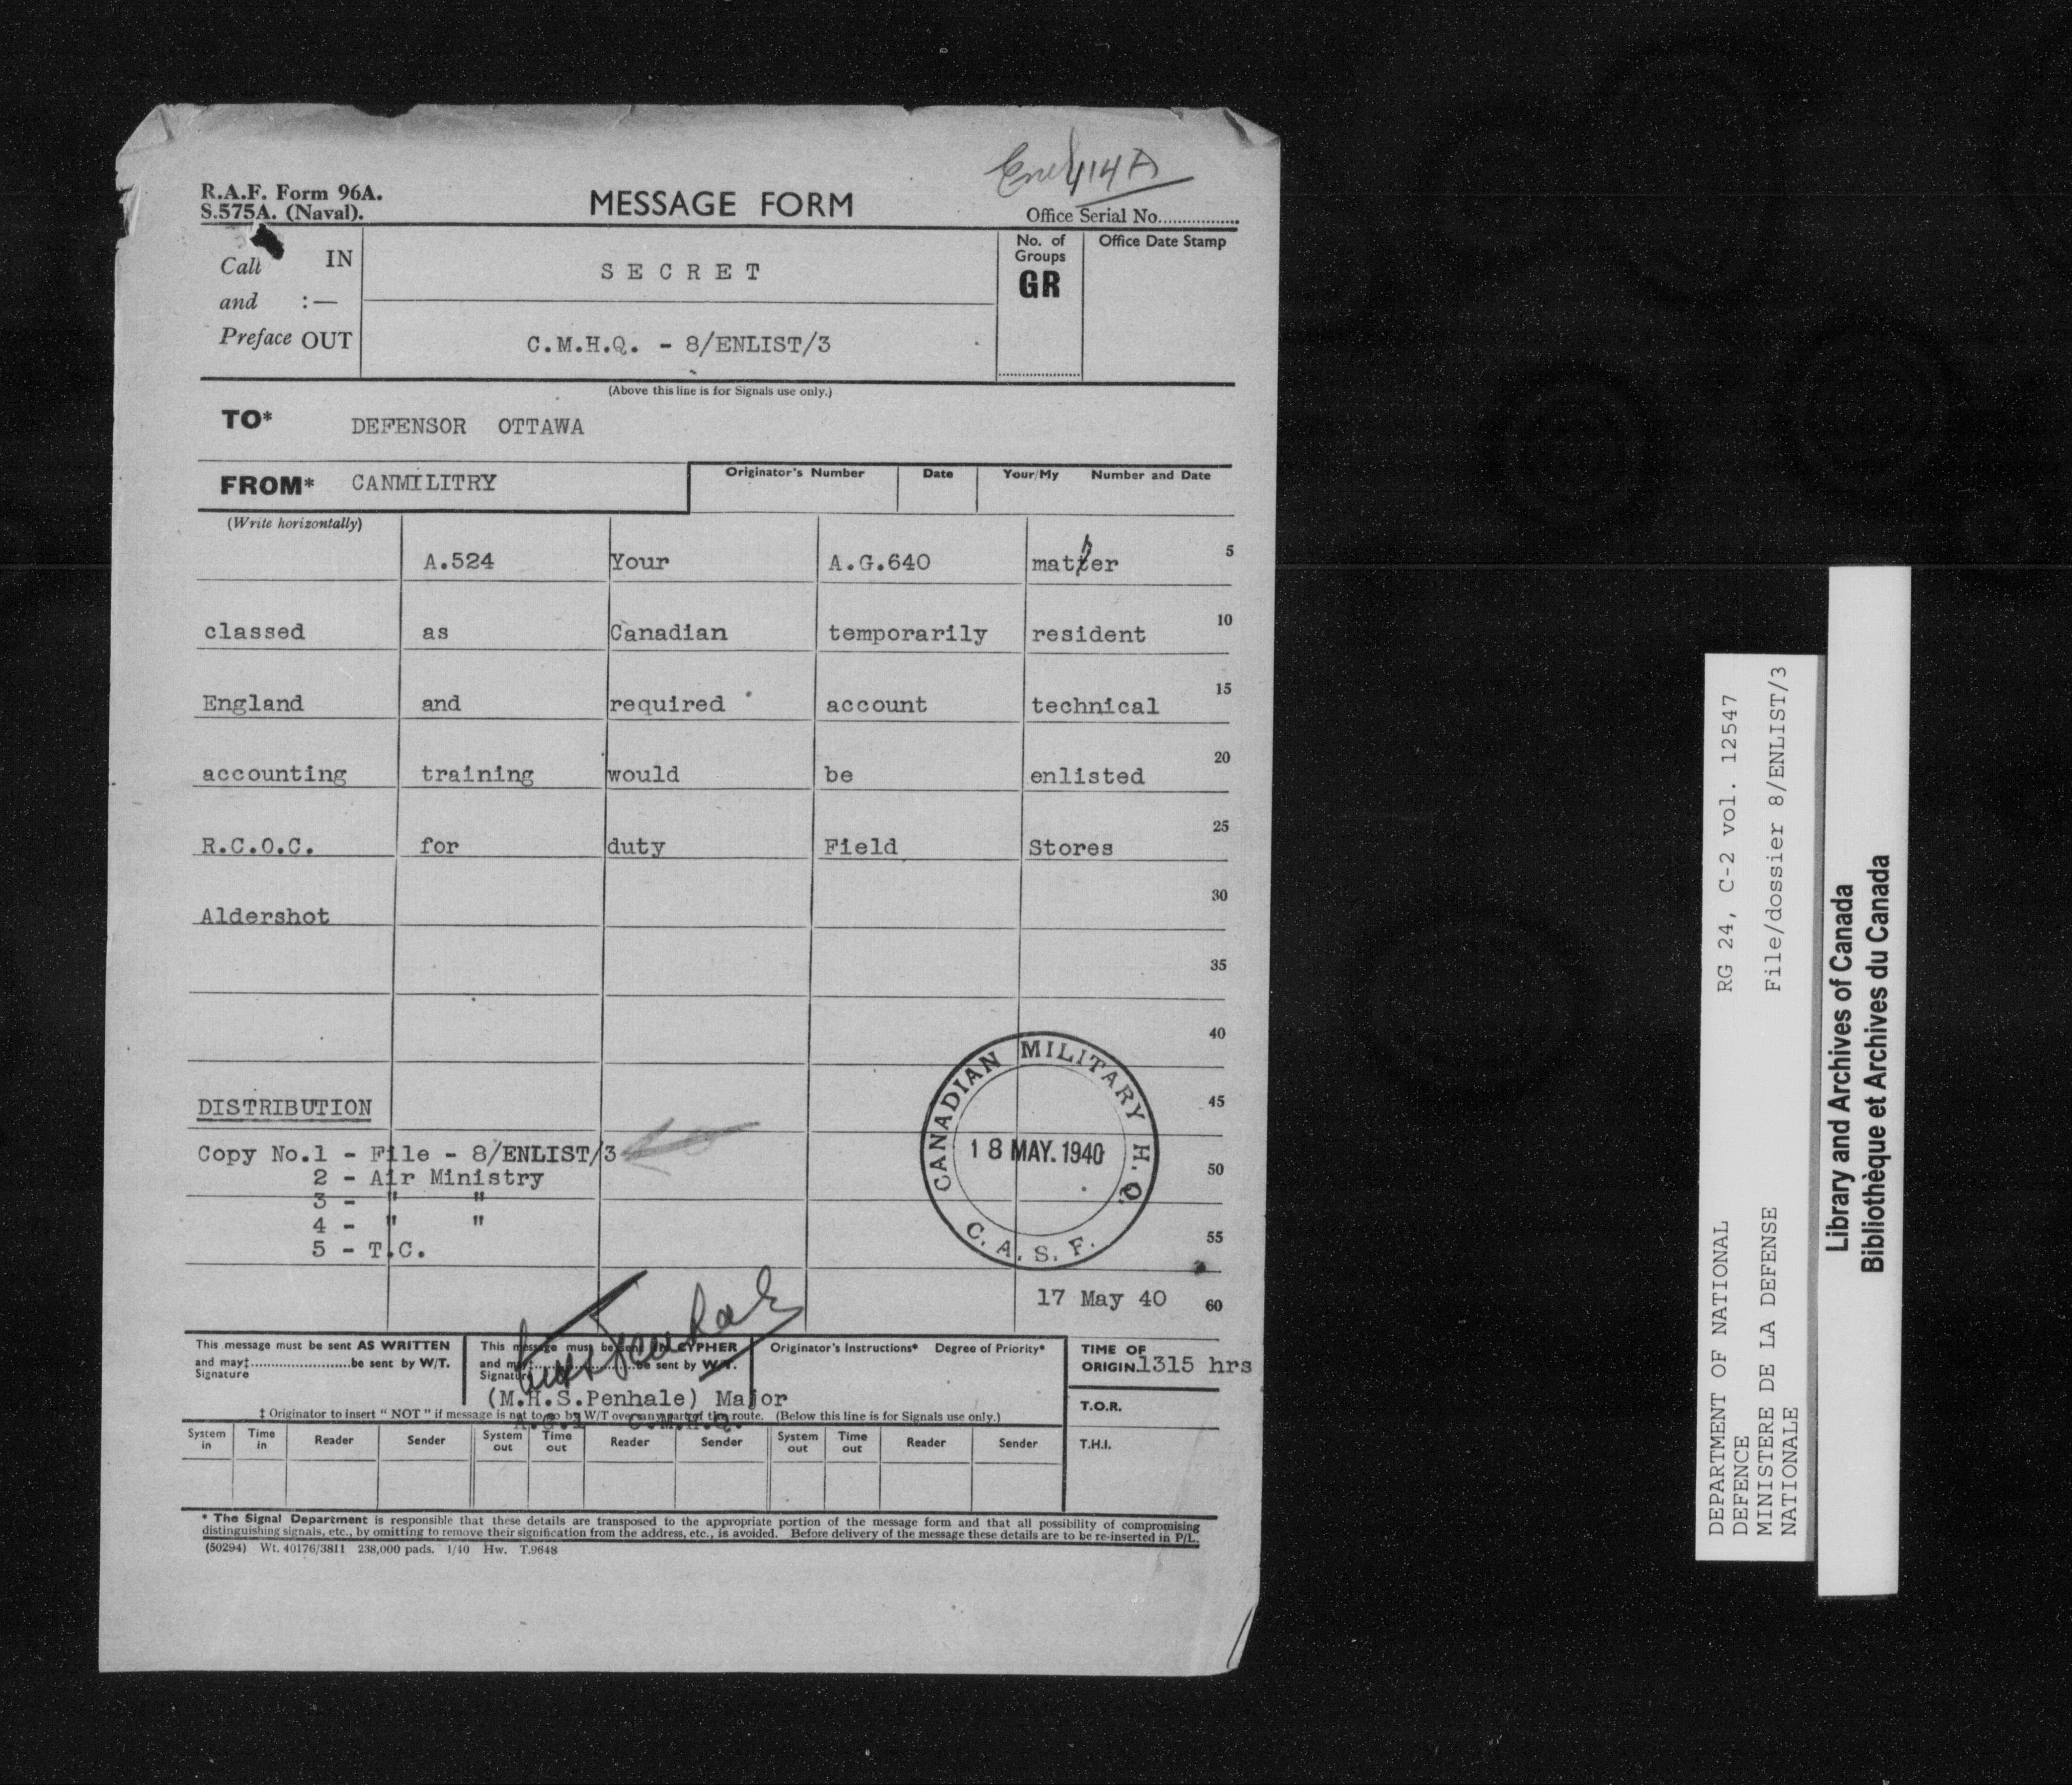 Encl 14A
R.A.F. Form 96A.
S.575A. (Naval).
MESSAGE FORM
Office Serial No.
Call IN
and :—
Preface OUT
SECRET
C.M.H.Q. - 8/ENLIST/3
No. of Groups
GR
Office Date Stamp
(Above this line is for Signals use only.)
TO* DEFENSOR OTTAWA
FROM* CANMILITRY
Originator's Number Date Your/My Number and Date
(Write horizontally)
A.524 Your A.G.640 matter 5
classed as Canadian temporarily resident 10
England and required account technical 15
accounting training would be enlisted 20
R.C.O.C. for duty Field Stores 25
Aldershot 30
35
40
DISTRIBUTION 45
Copy No.1 - File - 8/ENLIST/3 50
2 - Air Ministry
3 - " "
4 - " "
5 - T.C. 55
CANADIAN MILITARY H.Q.
18 MAY. 1940
C.A.S.F.
17 May 40 60
This message must be sent AS WRITTEN
and may‡..........be sent by W/T.
Signature
This message must be sent IN CYPHER
and may‡..........be sent by W/T.
Signature
(M.H.S.Penhale) Major
A.G.1 C.M.H.Q.
Originator's Instructions* Degree of Priority*
TIME OF
ORIGIN. 1315 hrs
T.O.R.
T.H.I.
‡ Originator to insert "NOT" if message is not to go by W/T over any part of the route. (Below this line is for Signals use only.)
System in Time in Reader Sender System out Time out Reader Sender System out Time out Reader Sender
* The Signal Department is responsible that these details are transposed to the appropriate portion of the message form and that all possibility of compromising
distinguishing signals, etc., by omitting to remove their signification from the address, etc., is avoided. Before delivery of the message these details are to be re-inserted in P/L.
(50294) Wt. 40176/3811 238,000 pads. 1/40 Hw. T.9648
DEPARTMENT OF NATIONAL RG 24, C-2 vol. 12547
DEFENCE
MINISTERE DE LA DEFENSE File/dossier 8/ENLIST/3
NATIONALE
Library and Archives of Canada
Bibliothèque et Archives du Canada